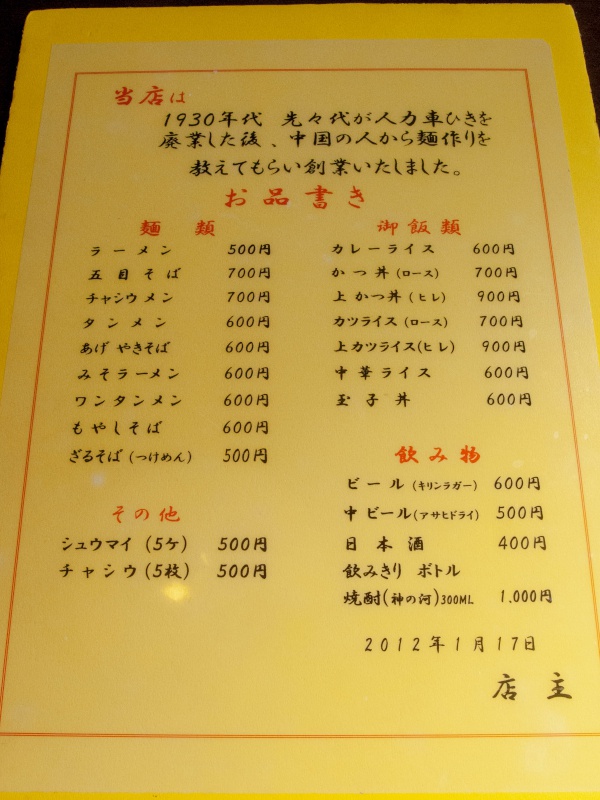 当店は
1930年代 先々代が人力車ひきを
廃業した後、中国の人から麺作りを
教えてもらい創業いたしました。
お品書き
麺類
ラーメン 500円
五目そば 700円
チャシウメン 700円
タンメン 600円
あげやきそば 600円
みそラーメン 600円
ワンタンメン 600円
もやしそば 600円
ざるそば(つけめん) 500円
その他
シュウマイ(5ケ) 500円
チャシウ(5枚) 500円
御飯類
カレーライス 600円
かつ丼(ロース) 700円
上かつ丼(ヒレ) 900円
カツライス(ロース) 700円
上カツライス(ヒレ) 900円
中華ライス 600円
玉子丼 600円
飲み物
ビール(キリンラガー) 600円
中ビール(アサヒドライ) 500円
日本酒 400円
飲みきり ボトル
焼酎(神の河)300ML 1.000円
2012年1月17日
店主